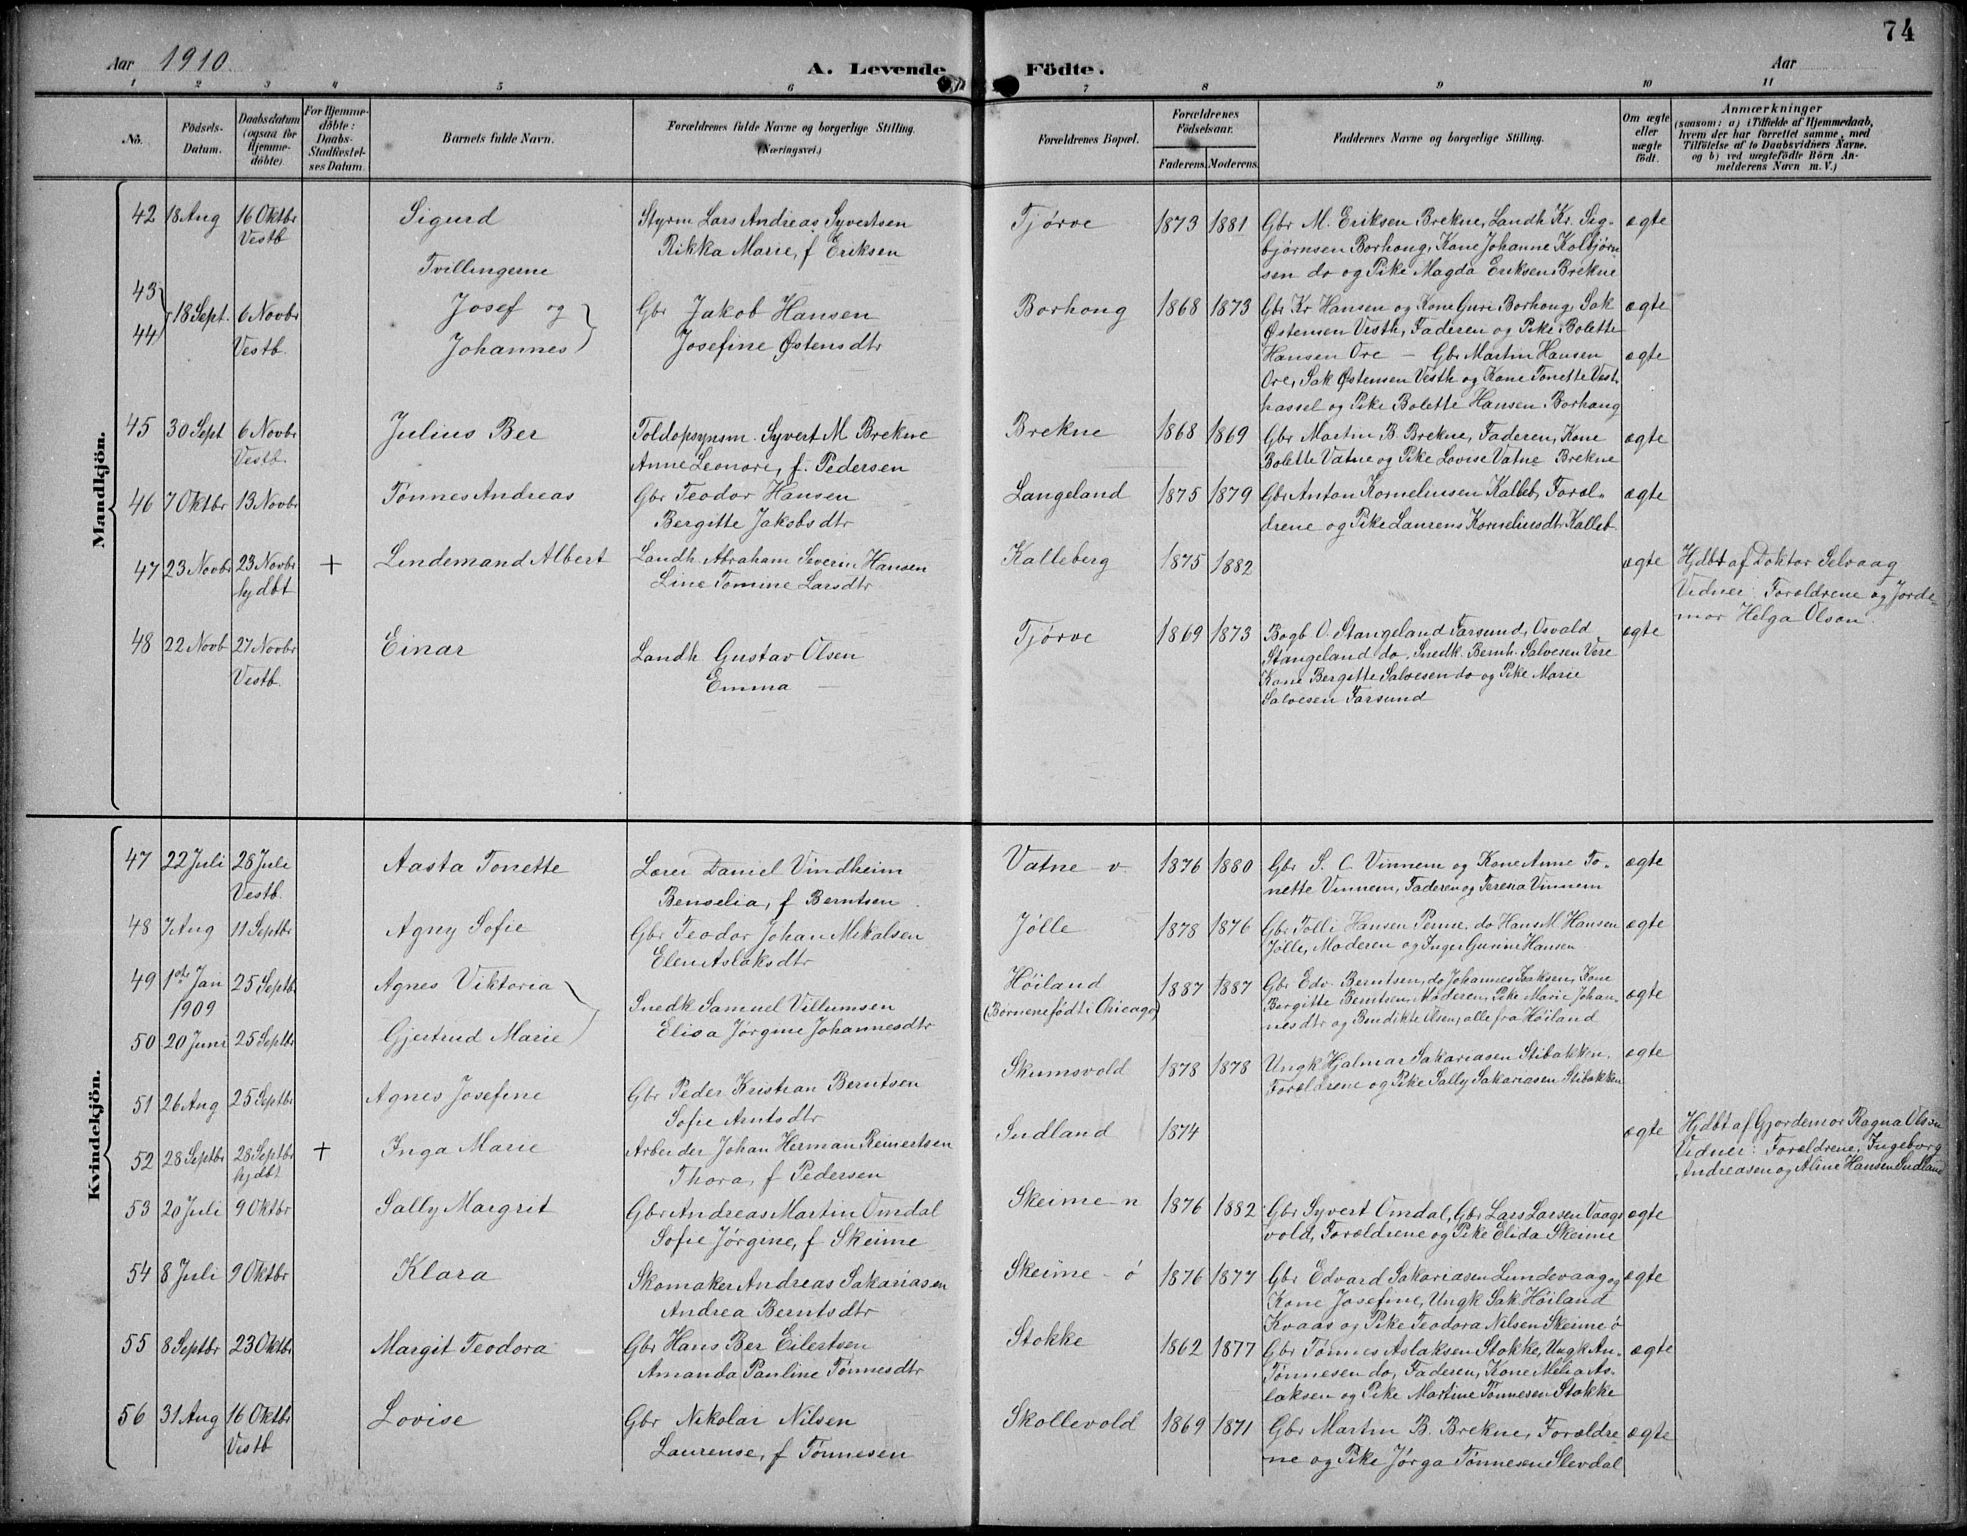 74
Aar 1910
A. Levende Födte.
Aar
1 2 3 4 5 6 7 8 9 10 11
No.
Födsels-Datum.
Daabsdatum (ogsaa for Hjemme-döbte)
For Hjemme-döbte: Daabs-Stadfæstel-ses Datum.
Barnets fulde Navn.
Forældrenes fulde Navne og borgerlige Stilling. (Næringsvei.)
Forældrenes Bopæl.
Forældrenes Födselsaar.
Faderens. Moderens.
Faddernes Navne og borgerlige Stilling.
Om ægte eller uægte födt.
Anmærkninger
(saasom: a) i Tilfælde af Hjemmedaab, hvem der har forrettet samme, med Tilföielse af to Daabsvidners Navne, og b) ved uægtefödte Börn An-melderens Navn m. V.)
Mandkjön.
42 18 Aug 16 Oktbr Sigurd Styrm Lars Andreas Syvertsen Tjörve 1873 1881 Gbr M. Eriksen Brekne, Landh Kr. Sig- ægte
Vestb Rikka Marie, f Eriksen bjørnsen Borhaug, Kone Johanne Kolbjørn
Tvillingerne sen do og Pike Magda Eriksen Brekne
43 18 Sept. 6 Novbr Josef og Gbr Jakob Hansen Borhaug 1868 1873 Gbr Kr Hansen og Kone Guri Borhaug, Sak ægte
44 Vestb. Johannes Josefine Østensdtr Østensen Vesth, Faderen og Pike Bolette
Hansen Ore - Gbr Martin Hansen ægte
Ore, Sak Østensen Vesth og Kone Tonette Vest-
hassel og Pike Bolette Hansen Borhaug
45 30 Sept 6 Novbr Julius Ber Toldopsynsm. Syvert M Brekne Brekne 1868 1869 Gbr Martin B. Brekne, Faderen, Kone ægte
Vestb. Anne Leonore, f. Pedersen Bolette Vatne og Pike Lovise Vatne Brekne
46 7 Oktbr 13 Novbr Tønnes Andreas Gbr Teodor Hansen Langeland 1875 1879 Gbr Anton Korneliusen Kalleb, Foræl- ægte
Bergitte Jakobsdtr drene og Pike Laurens Korneliusdtr Kalleb
47 23 Novbr 23 Novbr + Lindemand Albert Landh Abraham Severin Hansen Kalleberg 1875 1882 ægte Hjdbt af Doktor Selvaag
hjdbt Line Tomine Larsdtr Vidner: Forældrene og Jorde-
mor Helga Olson.
48 22 Novb 27 Novbr Einar Landh Gustav Olsen Tjörve 1869 1873 Bogb O. Stangeland Farsund, Osvald ægte
Vestb. Emma - Stangeland do, Snedk. Bernh. Salvesen Vere
Kone Bergitte Salvesen do og Pike Marie
Salvesen Farsund
Kvindekjön.
47 22 Juli 28 Juli Aasta Tonette Lærer Daniel Vindheim Vatne v. 1876 1880 Gbr S. C. Vinnem og Kone Anne To- ægte
Vestb. Benselia, f Berntsen nette Vinnem, Faderen og Teresia Vinnem
48 7 Aug 11 Septbr Agny Sofie Gbr Teodor Johan Mikalsen Jölle 1878 1876 Gbr Tolli Hansen Penne, do Hans M Hansen ægte
Elen Aslaksdtr Jölle, Moderen og Inger Gurine Hansen
49 1ste Jan 1909 25 Septbr Agnes Viktoria Snedk Samuel Villumsen Höiland 1887 1887 Gbr Edv. Berntsen, do Johannes Isaksen, Kone ægte
Elisa Jørgine Johannesdtr (Børnene født i Chicago) Bergitte Berntsen, Moderen, Pike Marie Johan-
50 20 Juni 25 Septbr Gjertrud Marie nesdtr og Bendikte Olsen, alle fra Höiland
51 26 Aug 25 Septbr Agnes Josefine Gbr Peder Kristian Berntsen Skumsvold 1878 1878 Ungk Hjalmar Sakariasen Stibakken, ægte
Sofie Arntsdtr Forældrene og Pike Sally Sakariasen Stibakken
52 28 Septbr 28 Septbr + Inga Marie Arbeider Johan Herman Reinertsen Sudland 1874 ægte Hjdbt af Gjordemor Ragna Olsen
hjdbt Thora, f Pedersen Vidner: Forældrene, Ingeborg
Andreasen og Aline Hansen Sudland
53 20 Juli 9 Oktbr Sally Margrit Gbr Andreas Martin Omdal Skeime n 1876 1882 Gbr Syvert Omdal, Gbr Lars Larsen Vaags ægte
Sofie Jørgine, f Skeime vold, Forældrene og Pike Elida Skeime
54 8 Juli 9 Oktbr Klara Skomaker Andreas Sakariasen Skeime - ö 1876 1877 Gbr Edvard Sakariasen Lundevaag og ægte
Andrea Berntsdtr Kone Josefine, Ungk Sak Höiland
Kvaas og Pike Teodora Nilsen Skeime ö
55 8 Septbr 23 Oktbr Margit Teodora Gbr Hans Ber Eilertsen Stokke 1862 1877 Gbr Tønnes Aslaksen Stokke, Ungk An- ægte
Amanda Pauline Tønnesdtr Tønnesen do, Faderen, Kone Melia As-
laksen og Pike Martine Tønnesen Stokke
56 31 Aug 16 Oktbr Lovise Gbr Nikolai Nilsen Skollevold 1869 1871 Gbr Martin B. Brekne, Forældre ægte
Vestb Laurense, f Tønnesen ne og Pike Jørga Tønnesen Slevdal